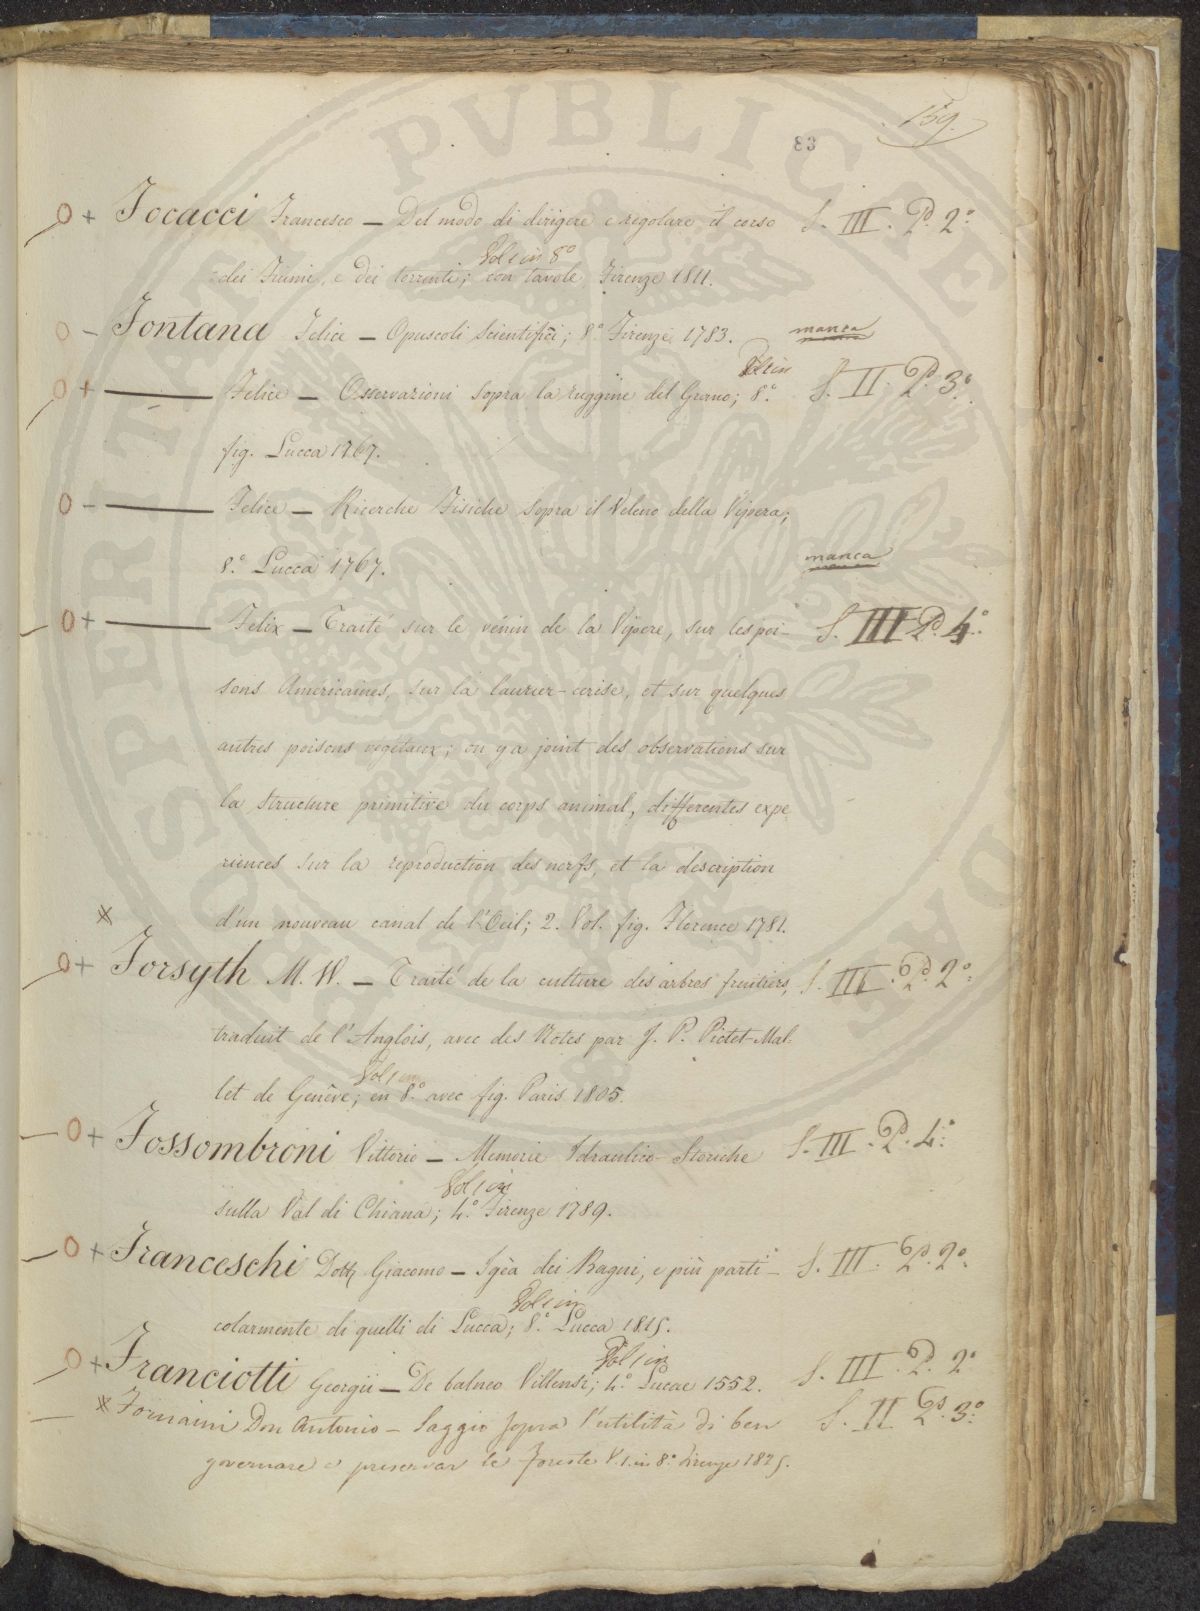 159.
83
0 + Focacci Francesco — Del modo di dirigere e regolare il corso S. III. P. 2°
Vol 1 in 8°
dei Fiumi, e dei torrenti; con tavole, Firenze 1811.
0 - Fontana Felice — Opuscoli Scientifici; 8.° Firenze 1783. manca
Vol 1 in
0 + ——— Felice — Osservazioni sopra la ruggine del Grano; 8.° S. II. P. 3.°
fig. Lucca 1767.
0 - ——— Felice — Ricerche Fisiche sopra il Veleno della Vipera;
8.° Lucca 1767. manca
0 + ——— Felix — Traité sur le vénin de la Vipere, sur les poi- S. III P. 4.°
sons Américaines, sur la laurier-cerise, et sur quelques
autres poisons végétaux; on y a joint des observations sur
la structure primitive du corps animal, differentes expe
riences sur la reproduction des nerfs, et la description
d'un nouveau canal de l'Oeil; 2. Vol. fig. Florence 1781.
0 + Forsyth M. W. — Traité de la culture des arbres fruitiers, S. III. P. 2°
traduit de l'Anglois, avec des Notes par J. P. Pictet-Mal-
Vol 1 in
let de Genêve; en 8.° avec fig. Paris 1805.
0 + Fossombroni Vittorio — Memorie Idraulico-Storiche S. III. P. 4.°
Vol 1 in
sulla Val di Chiana; 4.° Firenze 1789.
0 + Franceschi Dott. Giacomo — Igèa dei Bagni, e più parti- S. III. P. 2°
Vol 1 in
colarmente di quelli di Lucca; 8.° Lucca 1815.
Vol 1 in
0 + Franciotti Georgii — De balneo Villensi; 4.° Lucae 1552. S. III. P. 2°
Fornaini Don Antonio — Saggio sopra l'utilità di ben S. II P. 3.°
governare e preservar le foreste V. 1. in 8.° Firenze 1825.
PUBLICAE
PROSPERITATI